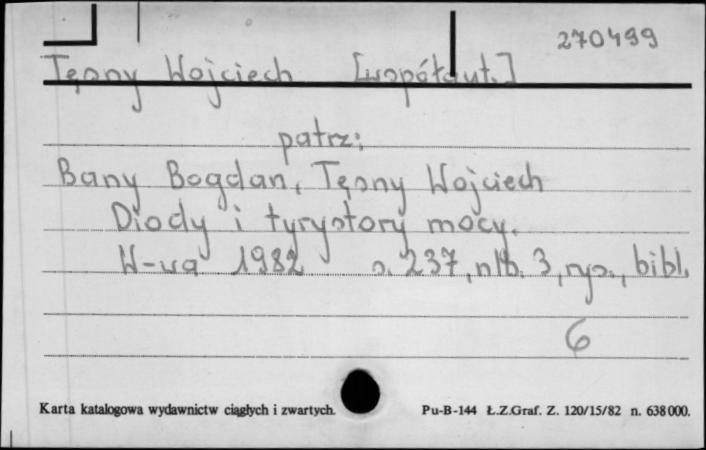 270499
Tęsny Wojciech [współaut.]
patrz:
Bany Bogdan, Tęsny Wojciech
Diody i tyrystory mocy.
W-wa 1982 s. 237, nlb. 3, rys., bibl.
6
Karta katalogowa wydawnictw ciągłych i zwartych.
Pu-B-144 Ł.Z.Graf. Z. 120/15/82 n. 638000.